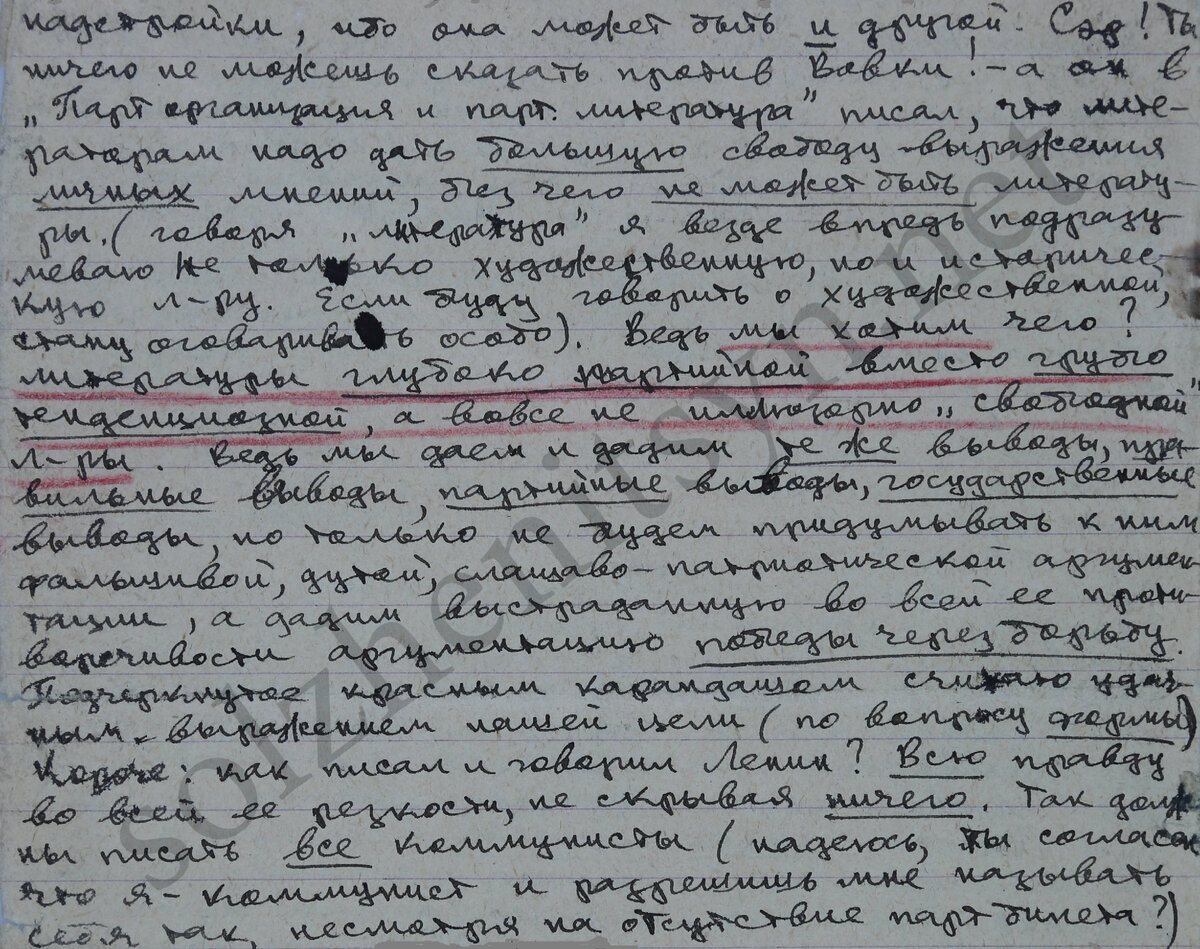 надстройки, ибо она может быть и другой. Сэр! Ты
ничего не можешь сказать против Вовки! – а он в
„Парт организация и парт. литература" писал, что лите-
раторам надо дать большую свободу выражения
личных мнений, без чего не может быть литерату-
ры. (говоря „литература" я везде впредь подразу
меваю не только художественную, но и историчес-
кую л-ру. Если буду говорить о художественной,
стану оговаривать особо). Ведь мы хотим чего?
литературы глубоко партийной вместо грубо
тенденциозной, а вовсе не иллюзорно „свободной"
л-ры. Ведь мы даем и дадим те же выводы, пра-
вильные выводы, партийные выводы, государственные
выводы, но только не будем придумывать к ним
фальшивой, дутой, слащаво-патриотической аргумен-
тации, а дадим выстраданную во всей ее проти-
воречивости аргументацию победы через борьбу.
Подчеркнутое красным карандашом считаю удач-
ным выражением нашей цели (по вопросу формы)
Короче: как писал и говорил Ленин? Всю правду
во всей ее резкости, не скрывая ничего. Так долж
ны писать все коммунисты (надеюсь, ты согласен
что я – коммунист и разрешишь мне называть
себя так, несмотря на отсутствие парт билета?)
solzhenitsyn.net